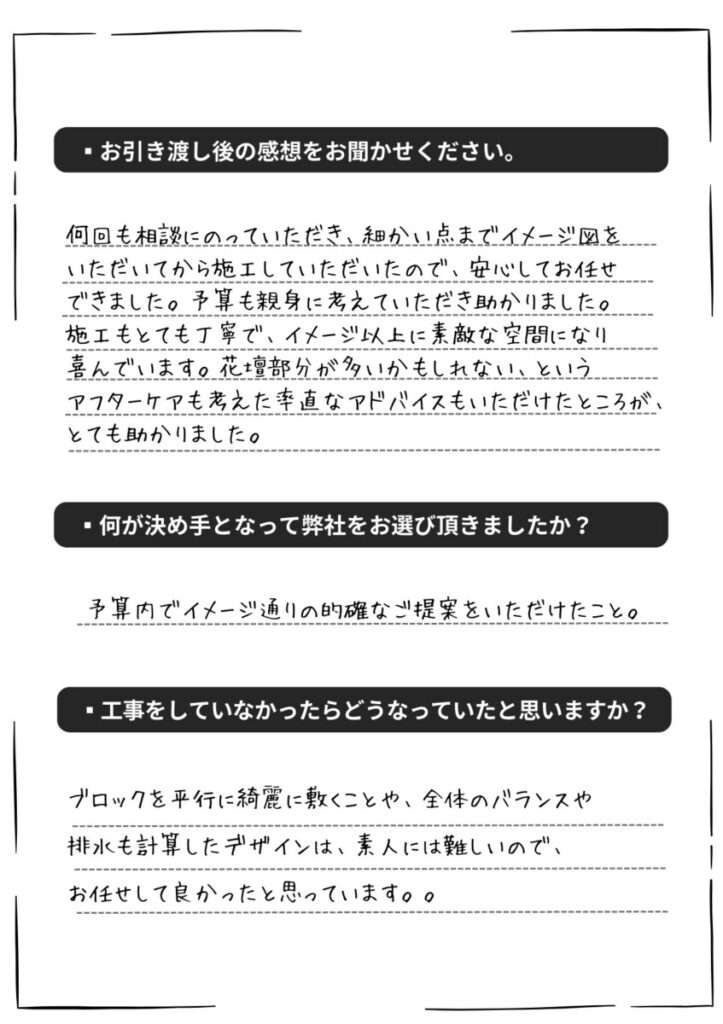 ▪お引き渡し後の感想をお聞かせください。
何回も相談にのっていただき、細かい点までイメージ図を
いただいてから施工していただいたので、安心してお任せ
できました。予算も親身に考えていただき助かりました。
施工もとても丁寧で、イメージ以上に素敵な空間になり
喜んでいます。花壇部分が多いかもしれない、という
アフターケアも考えた率直なアドバイスもいただけたところが、
とても助かりました。
▪何が決め手となって弊社をお選び頂きましたか？
予算内でイメージ通りの的確なご提案をいただけたこと。
▪工事をしていなかったらどうなっていたと思いますか？
ブロックを平行に綺麗に敷くことや、全体のバランスや
排水も計算したデザインは、素人には難しいので、
お任せして良かったと思っています。。